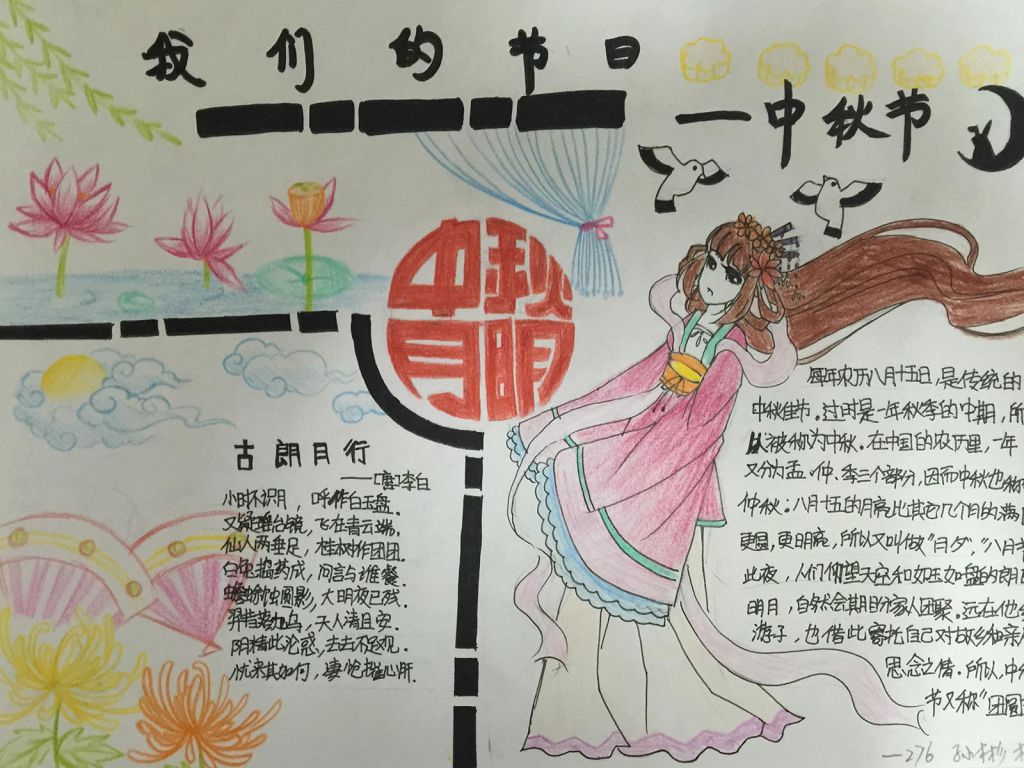 我们的节日
一中秋节
中秋
明月
古朗月行
——[唐]李白
小时不识月，呼作白玉盘．
又疑瑶台镜，飞在青云端．
仙人两垂足，桂树作团团．
白兔捣药成，问言与谁餐．
蟾蜍蚀圆影，大明夜已残．
羿昔落九乌，天人清且安．
阴精此沦惑，去去不足观．
忧来其如何，凄怆摧心肝．
每年农历八月十五日，是传统的
中秋佳节．这时是一年秋季的中期，所
以被称为中秋．在中国的农历里，一年
又分为孟．仲．季三个部分，因而中秋也称
仲秋．八月十五的月亮比其它几个月的满
更圆，更明亮，所以又叫做"月夕"，"八月
此夜，人们仰望天空和如玉如盘的朗
明月，自然会期盼家人团聚．远在他
游子，也借此寄托自己对故乡和亲
思念之情．所以，中
节又称"团圆
—276 孙彬